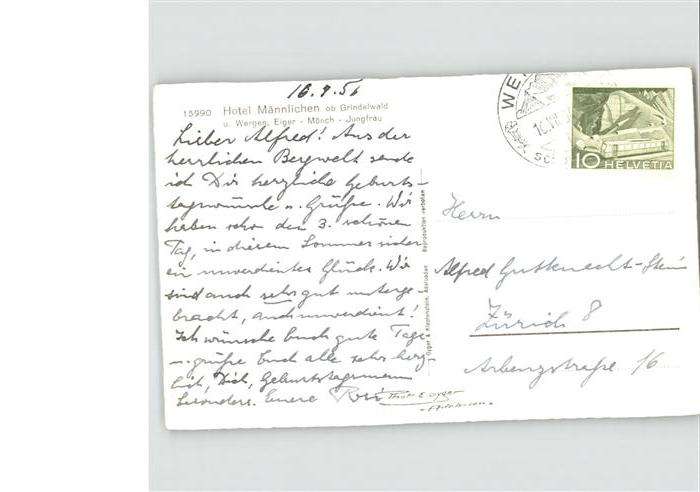 15990 Hotel Männlichen ob Grindelwald
u. Wergen, Eiger - Mönch - Jungfrau
Lieber Alfred! Aus der
herrlichen Bergwelt sende
ich Dir herzliche Geburts-
tagswünsche u. Grüße. Wir
haben schon den 3. schönen
Tag, in diesem Sommer sicher
ein unverdientes Glück. Wir
sind auch sehr gut unterge-
bracht, auch unverdient!
Ich wünsche Euch gute Tage
u. grüße Euch alle sehr herz-
lich, Dich, Geburtstagsmann
besonders. Euere Rosi
Photo E. Gyger
Adelboden
E. Gyger & Klopfenstein, Adelboden Reproduktion verboten
WE
HELVETIA
10
Herrn
Alfred Gutknecht-Stein
Zürich 8
Arbenzstraße 16